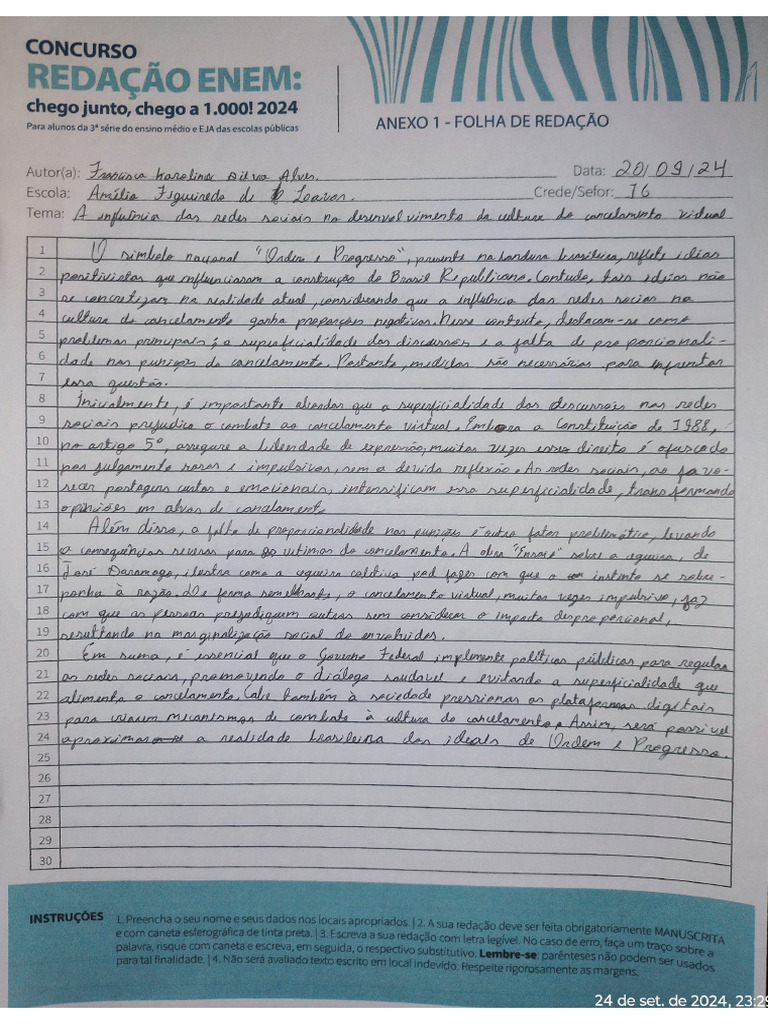 CONCURSO
REDAÇÃO ENEM:
chego junto, chego a 1.000! 2024
Para alunos da 3ª série do ensino médio e EJA das escolas públicas
ANEXO 1 - FOLHA DE REDAÇÃO
Autor(a): Francisca Karolina Silva Alves. Data: 20/09/24
Escola: Amélia Figueiredo de Lavor. Crede/Sefor: 16
Tema: A influência das redes sociais no desenvolvimento da cultura do cancelamento virtual
1 O simbolo nacional "Ordem e Progresso", presente na bandeira brasileira, reflete ideias
2 positivistas que influenciaram a construção do Brasil Republicano. Contudo, tais ideias não
3 se concretizam na realidade atual, considerando que a influência das redes sociais na
4 cultura do cancelamento ganha proporções negativas. Nesse contexto, destacam-se como
5 problemas principais: a superficialidade das discussões e a falta de proporcionali-
6 dade nas punições do cancelamento. Portanto, medidas são necessárias para enfrentar
7 essa questão.
8 Inicialmente, é importante abordar que a superficialidade das discussões nas redes
9 sociais prejudica o combate ao cancelamento virtual. Embora a Constituição de 1988,
10 no artigo 5º, assegure a liberdade de expressão, muitas vezes esse direito é ofuscado
11 por julgamento rasos e impulsivos, sem a devida reflexão. As redes sociais, ao favo-
12 recer postagens curtas e emocionais, intensificam essa superficialidade, transformando
13 opiniões em alvos de cancelamento.
14 Além disso, a falta de proporcionalidade nas punições é outro fator problemático, levando
15 a consequências severas para as vitimas do cancelamento. A obra "Ensaio" sobre a cegueira, de
16 José Saramago, ilustra como a cegueira coletiva pod fazer com que o instinto se sobre-
17 ponha à razão. De forma semelhante, o cancelamento virtual, muitas vezes impulsivo, faz
18 com que as pessoas prejudiquem outras sem considerar o impacto desproporcional,
19 resultando na marginalização social do envolvidos.
20 Em suma, é essencial que o Governo Federal implemente políticas públicas para regular
21 as redes sociais, promovendo o diálogo saudável e evitando a superficialidade que
22 alimenta o cancelamento. Cabe também à sociedade pressionar as plataformas digitais
23 para criarem mecanismos de combate à cultura do cancelamento. Assim, será possível
24 aproximar a realidade brasileira dos ideals de Ordem e Progresso.
25
26
27
28
29
30
INSTRUÇÕES 1. Preencha o seu nome e seus dados nos locais apropriados. | 2. A sua redação deve ser feita obrigatoriamente MANUSCRITA
e com caneta esferográfica de tinta preta. | 3. Escreva a sua redação com letra legível. No caso de erro, faça um traço sobre a
palavra, risque com caneta e escreva, em seguida, o respectivo substitutivo. Lembre-se: parênteses não podem ser usados
para tal finalidade. | 4. Não será avaliado texto escrito em local indevido. Respeite rigorosamente as margens.
24 de set. de 2024, 23:29